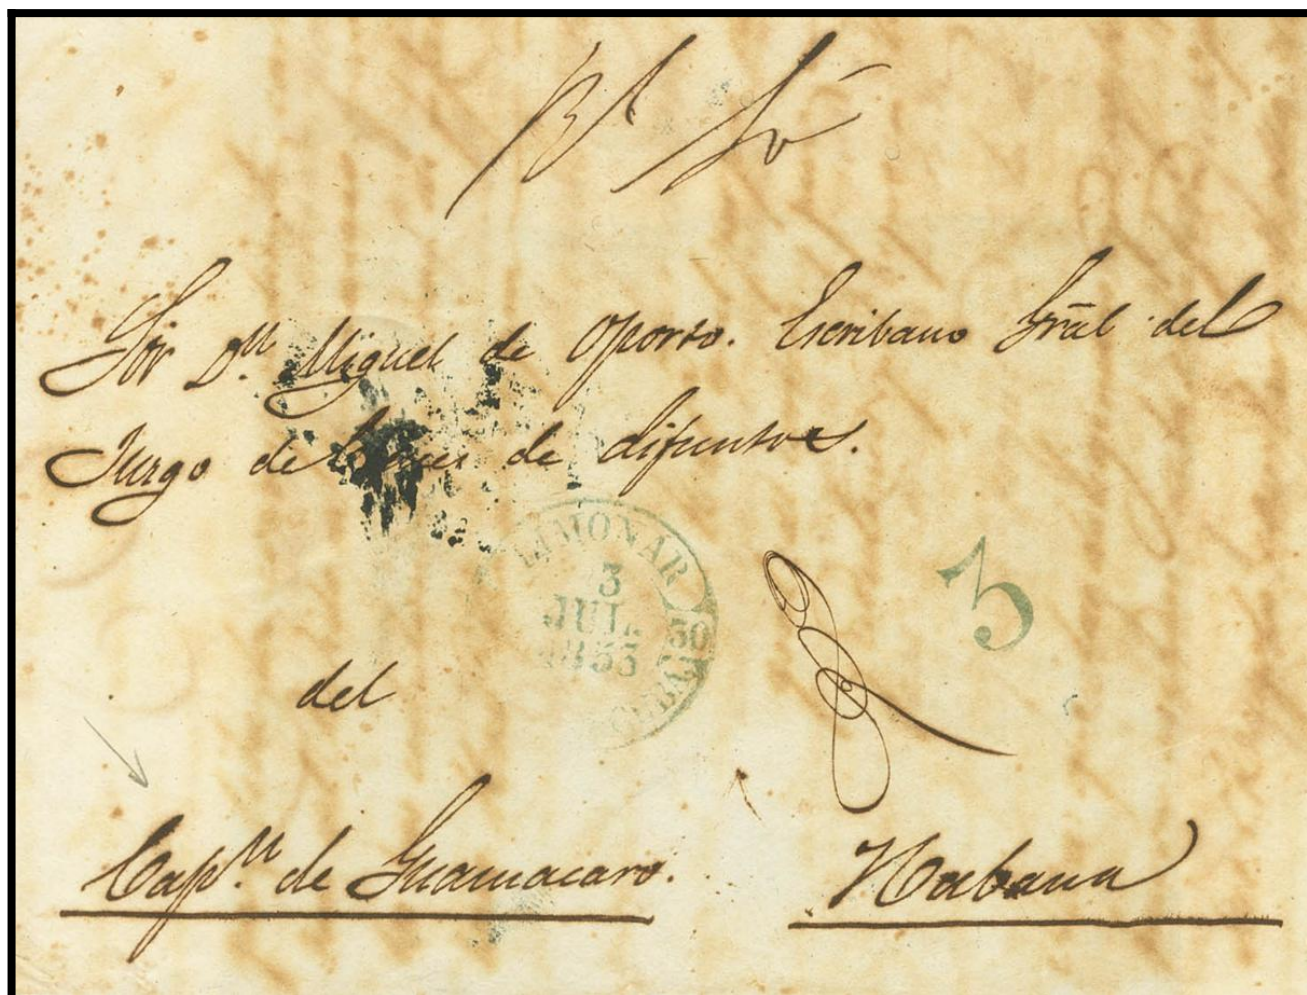 Sor Dn. Miguel de Oporto. Escribano Gral del
Juzgo de bienes de difuntos.
LIMONAR
3
JUL.
1853
30
CUBA
3
del
Capn. de Guamacaro.
Habana